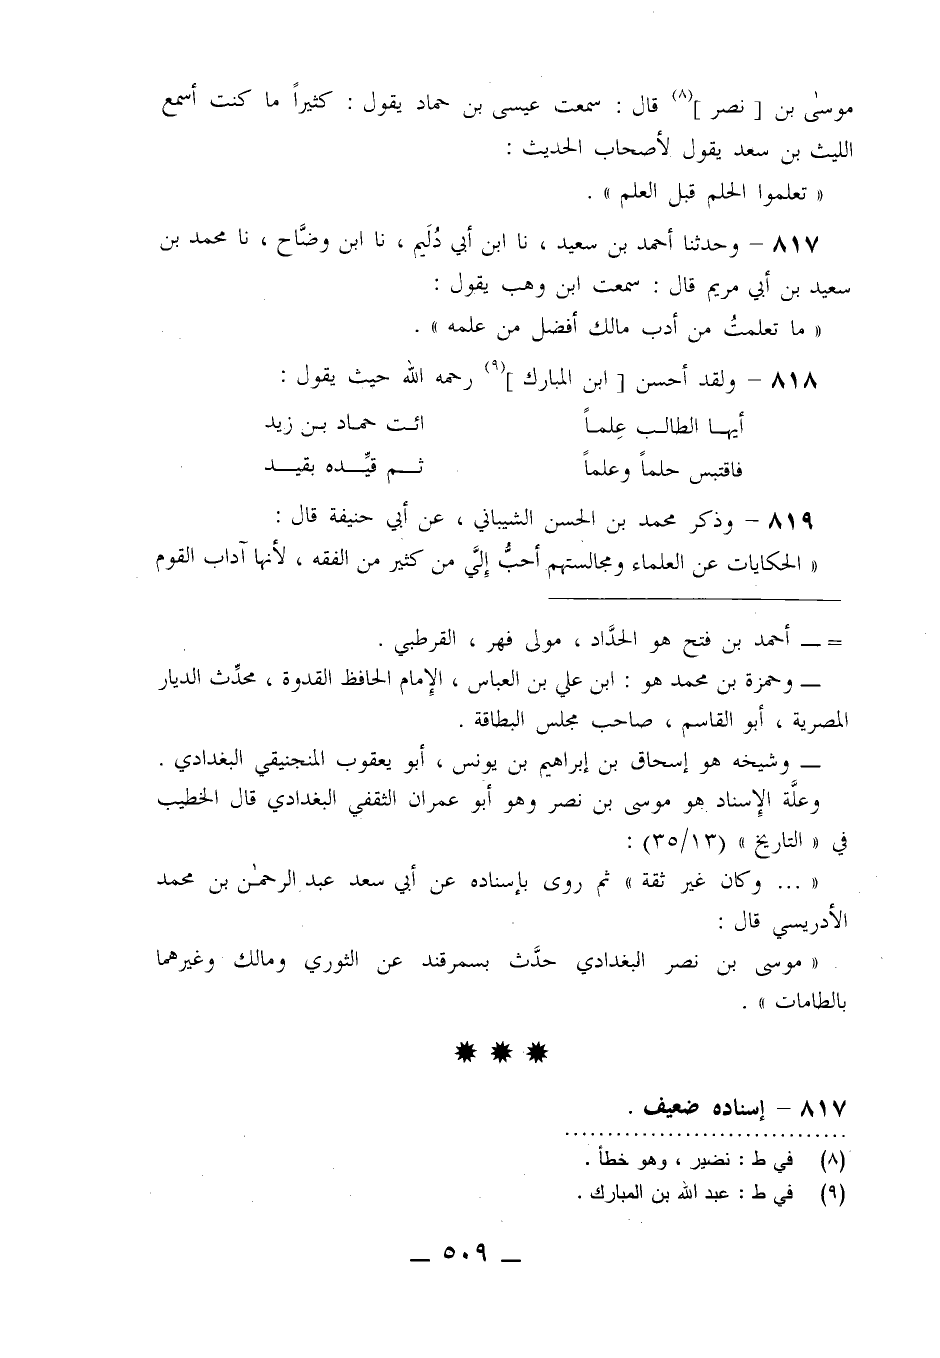 موسىٰ بن [ نصر ](٨) قال : سمعت عيسى بن حماد يقول : كثيراً ما كنت أسمع
الليث بن سعد يقول لأصحاب الحديث :
« تعلموا الحلم قبل العلم » .
٨١٧ – وحدثنا أحمد بن سعيد ، نا ابن أبي دُلَيم ، نا ابن وضَّاح ، نا محمد بن
سعيد بن أبي مريم قال : سمعت ابن وهب يقول :
« ما تعلمتُ من أدب مالك أفضل من علمه » .
٨١٨ – ولقد أحسن [ ابن المبارك ](٩) رحمه الله حيث يقول :
أيهـا الطالب عِلماً ائت حماد بن زيد
فاقتبس حلماً وعلماً ثم قيِّده بقيد
٨١٩ – وذكر محمد بن الحسن الشيباني ، عن أبي حنيفة قال :
« الحكايات عن العلماء ومجالستهم أحبُّ إليَّ من كثير من الفقه ، لأنها آداب القوم
= ــ أحمد بن فتح هو الحدَّاد ، مولى فهر ، القرطبي .
ــ وحمزة بن محمد هو : ابن علي بن العباس ، الإمام الحافظ القدوة ، محدِّث الديار
المصرية ، أبو القاسم ، صاحب مجلس البطاقة .
ــ وشيخه هو إسحاق بن إبراهيم بن يونس ، أبو يعقوب المنجنيقي البغدادي .
وعلَّة الإسناد هو موسى بن نصر وهو أبو عمران الثقفي البغدادي قال الخطيب
في « التاريخ » (٣٥/١٣) :
« ... وكان غير ثقة » ثم روى بإسناده عن أبي سعد عبد الرحمٰن بن محمد
الأدريسي قال :
« موسى بن نصر البغدادي حدَّث بسمرقند عن الثوري ومالك وغيرهما
بالطامات » .
٨١٧ – إسناده ضعيف .
(٨) في ط : نضير ، وهو خطأ .
(٩) في ط : عبد الله بن المبارك .
ــ ٥٠٩ ــ